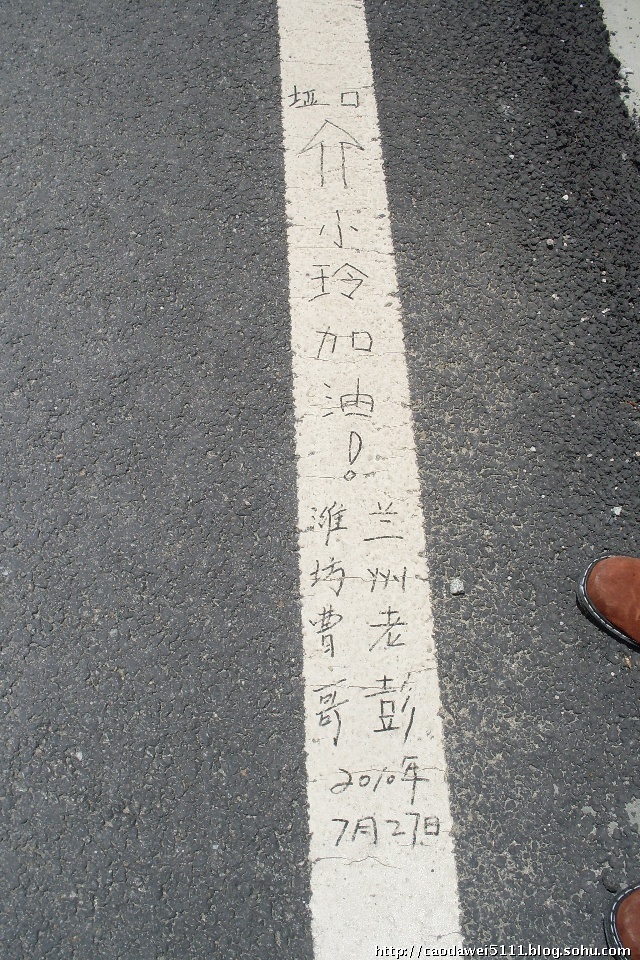 垭口
小玲加油!
兰州老彭
潍坊曹哥
2010年
7月27日
http://caodawei5111.blog.sohu.com